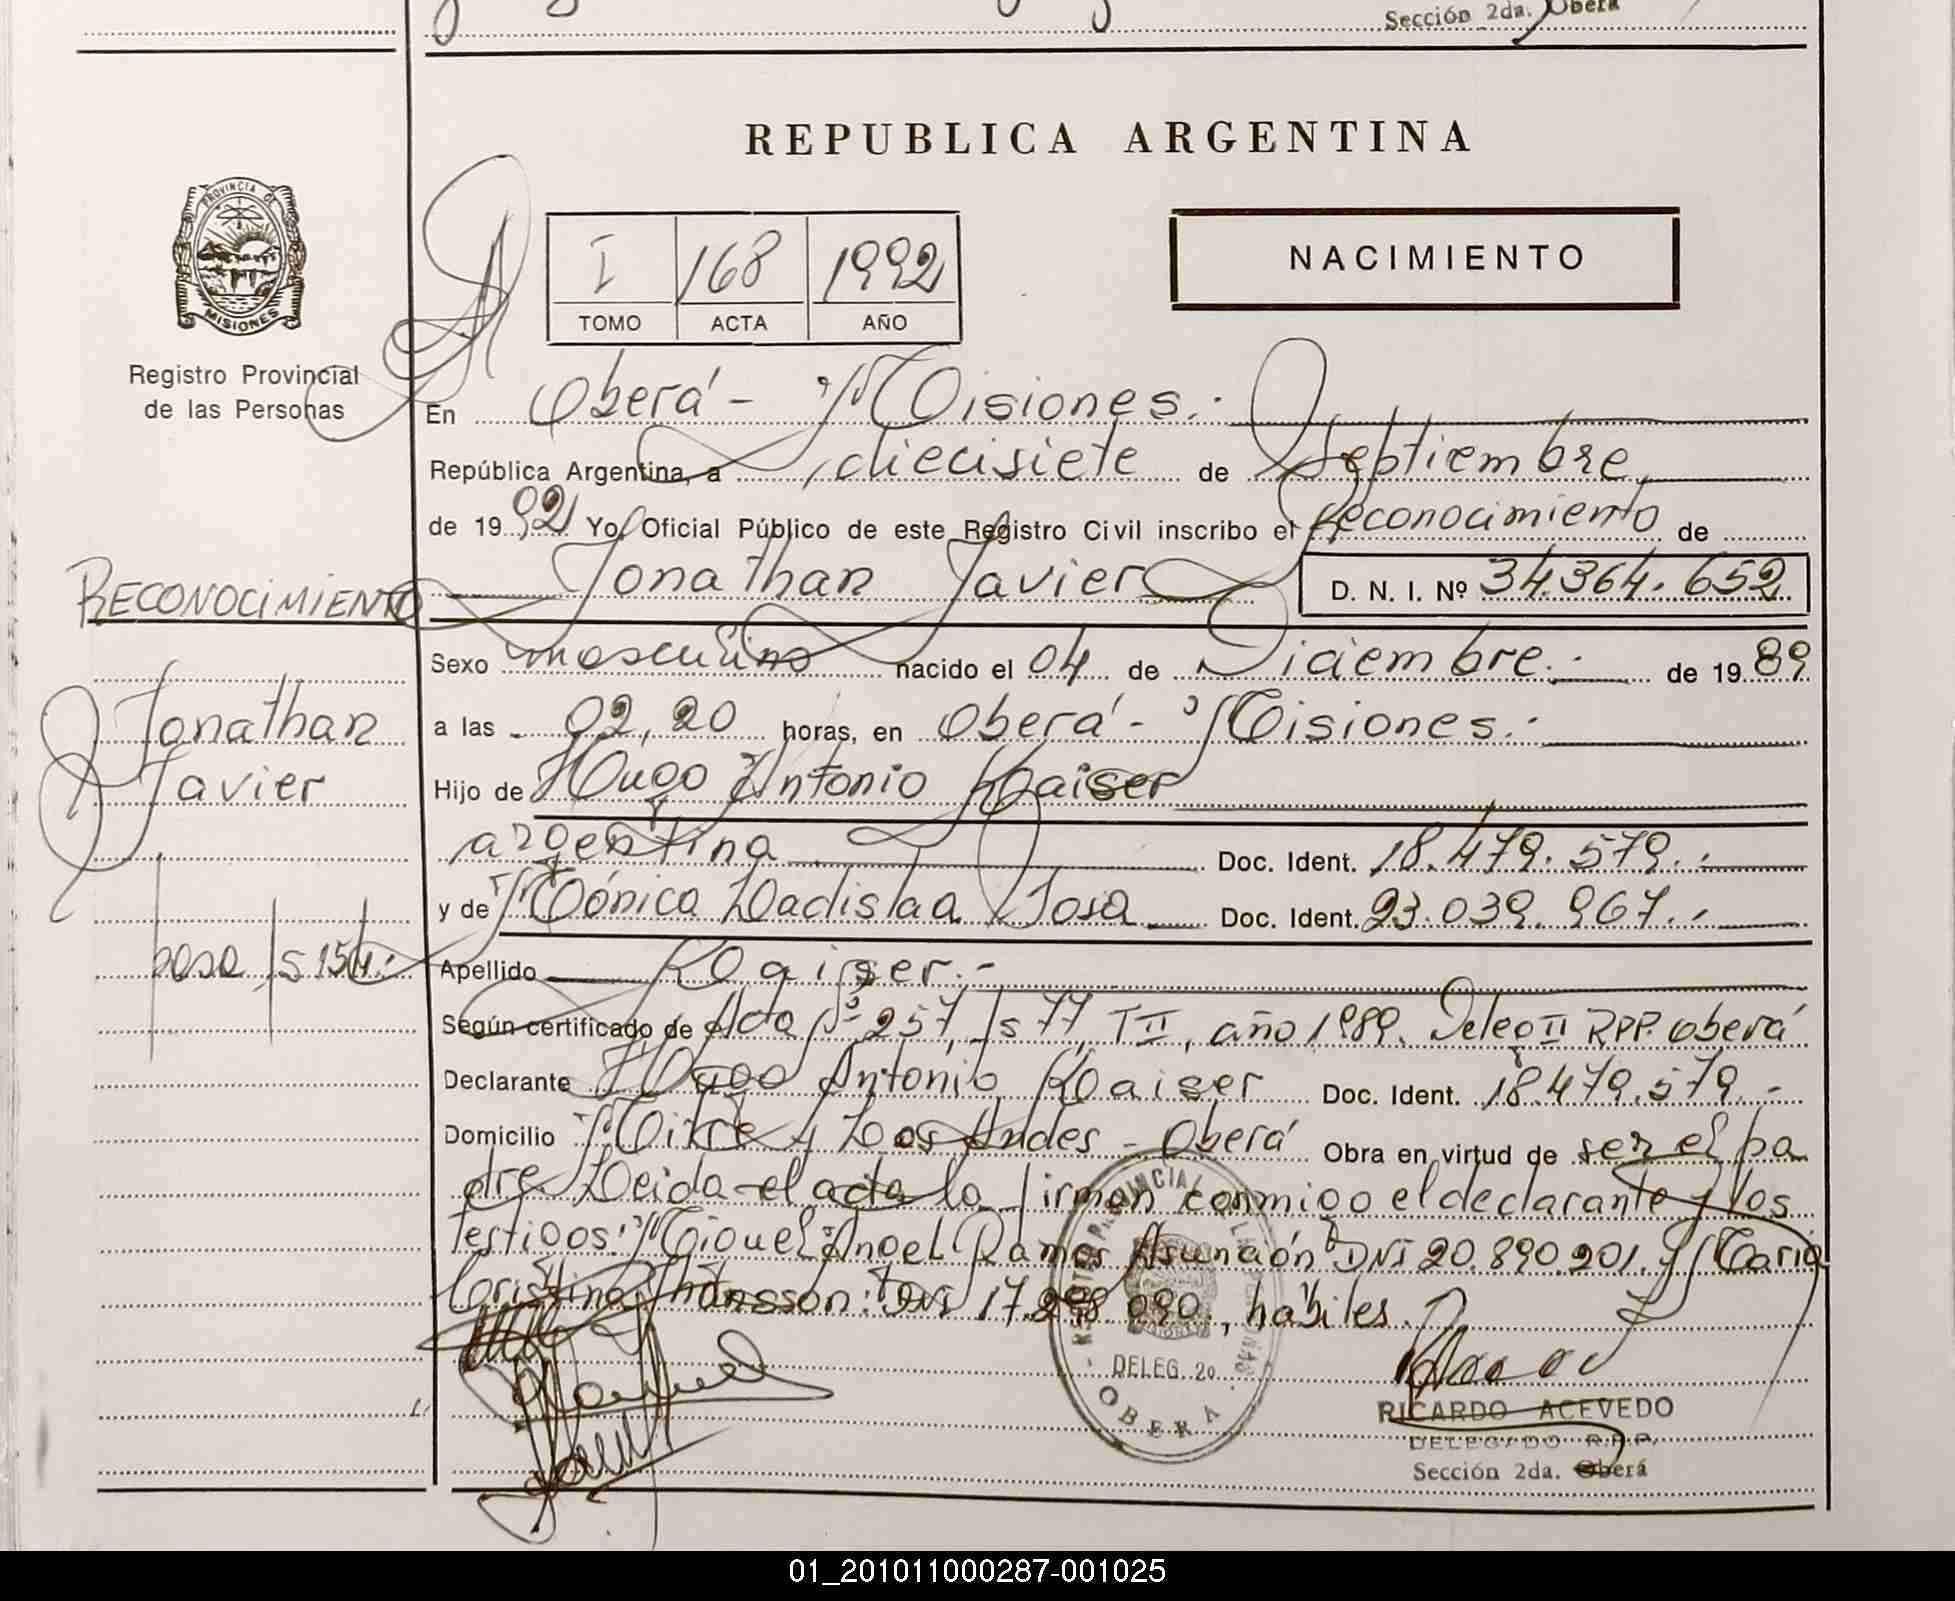 Sección 2da. Oberá
REPUBLICA ARGENTINA
PROVINCIA DE
MISIONES
Registro Provincial
de las Personas
I 168 1992
TOMO ACTA AÑO
NACIMIENTO
En Oberá - Misiones.-
República Argentina, a diecisiete de Septiembre
de 1992 Yo, Oficial Público de este Registro Civil inscribo el Reconocimiento de
Jonathan Javier D. N. I. Nº 34.364.652
RECONOCIMIENTO
Sexo masculino nacido el 04 de Diciembre.- de 1989
Jonathan
Javier
a las 02,20 horas, en Oberá - Misiones.-
Hijo de Hugo Antonio Kaiser
argentina Doc. Ident. 18.479.579.-
y de Mónica Ladislaa Sosa Doc. Ident. 23.039.967.-
pasa fs 154.-
Apellido Kaiser.-
Según certificado de Acta Nº 257, fs 77, T II, año 1989. Deleg II RPP. Oberá
Declarante Hugo Antonio Kaiser Doc. Ident. 18.479.579.-
Domicilio Mitre y Los Andes - Oberá Obra en virtud de ser el pa
dre. Leida el acta la firman conmigo el declarante y los
testigos: Miguel Angel Ramos Asunción DNI 20.890.201. y Maria
Cristina DNI 17. 090., hábiles.
REGISTRO PROVINCIAL DE LAS PERSONAS
DELEG. 2a
OBERA
RICARDO ACEVEDO
DELEGADO R.P.P.
Sección 2da. Oberá
01_201011000287-001025